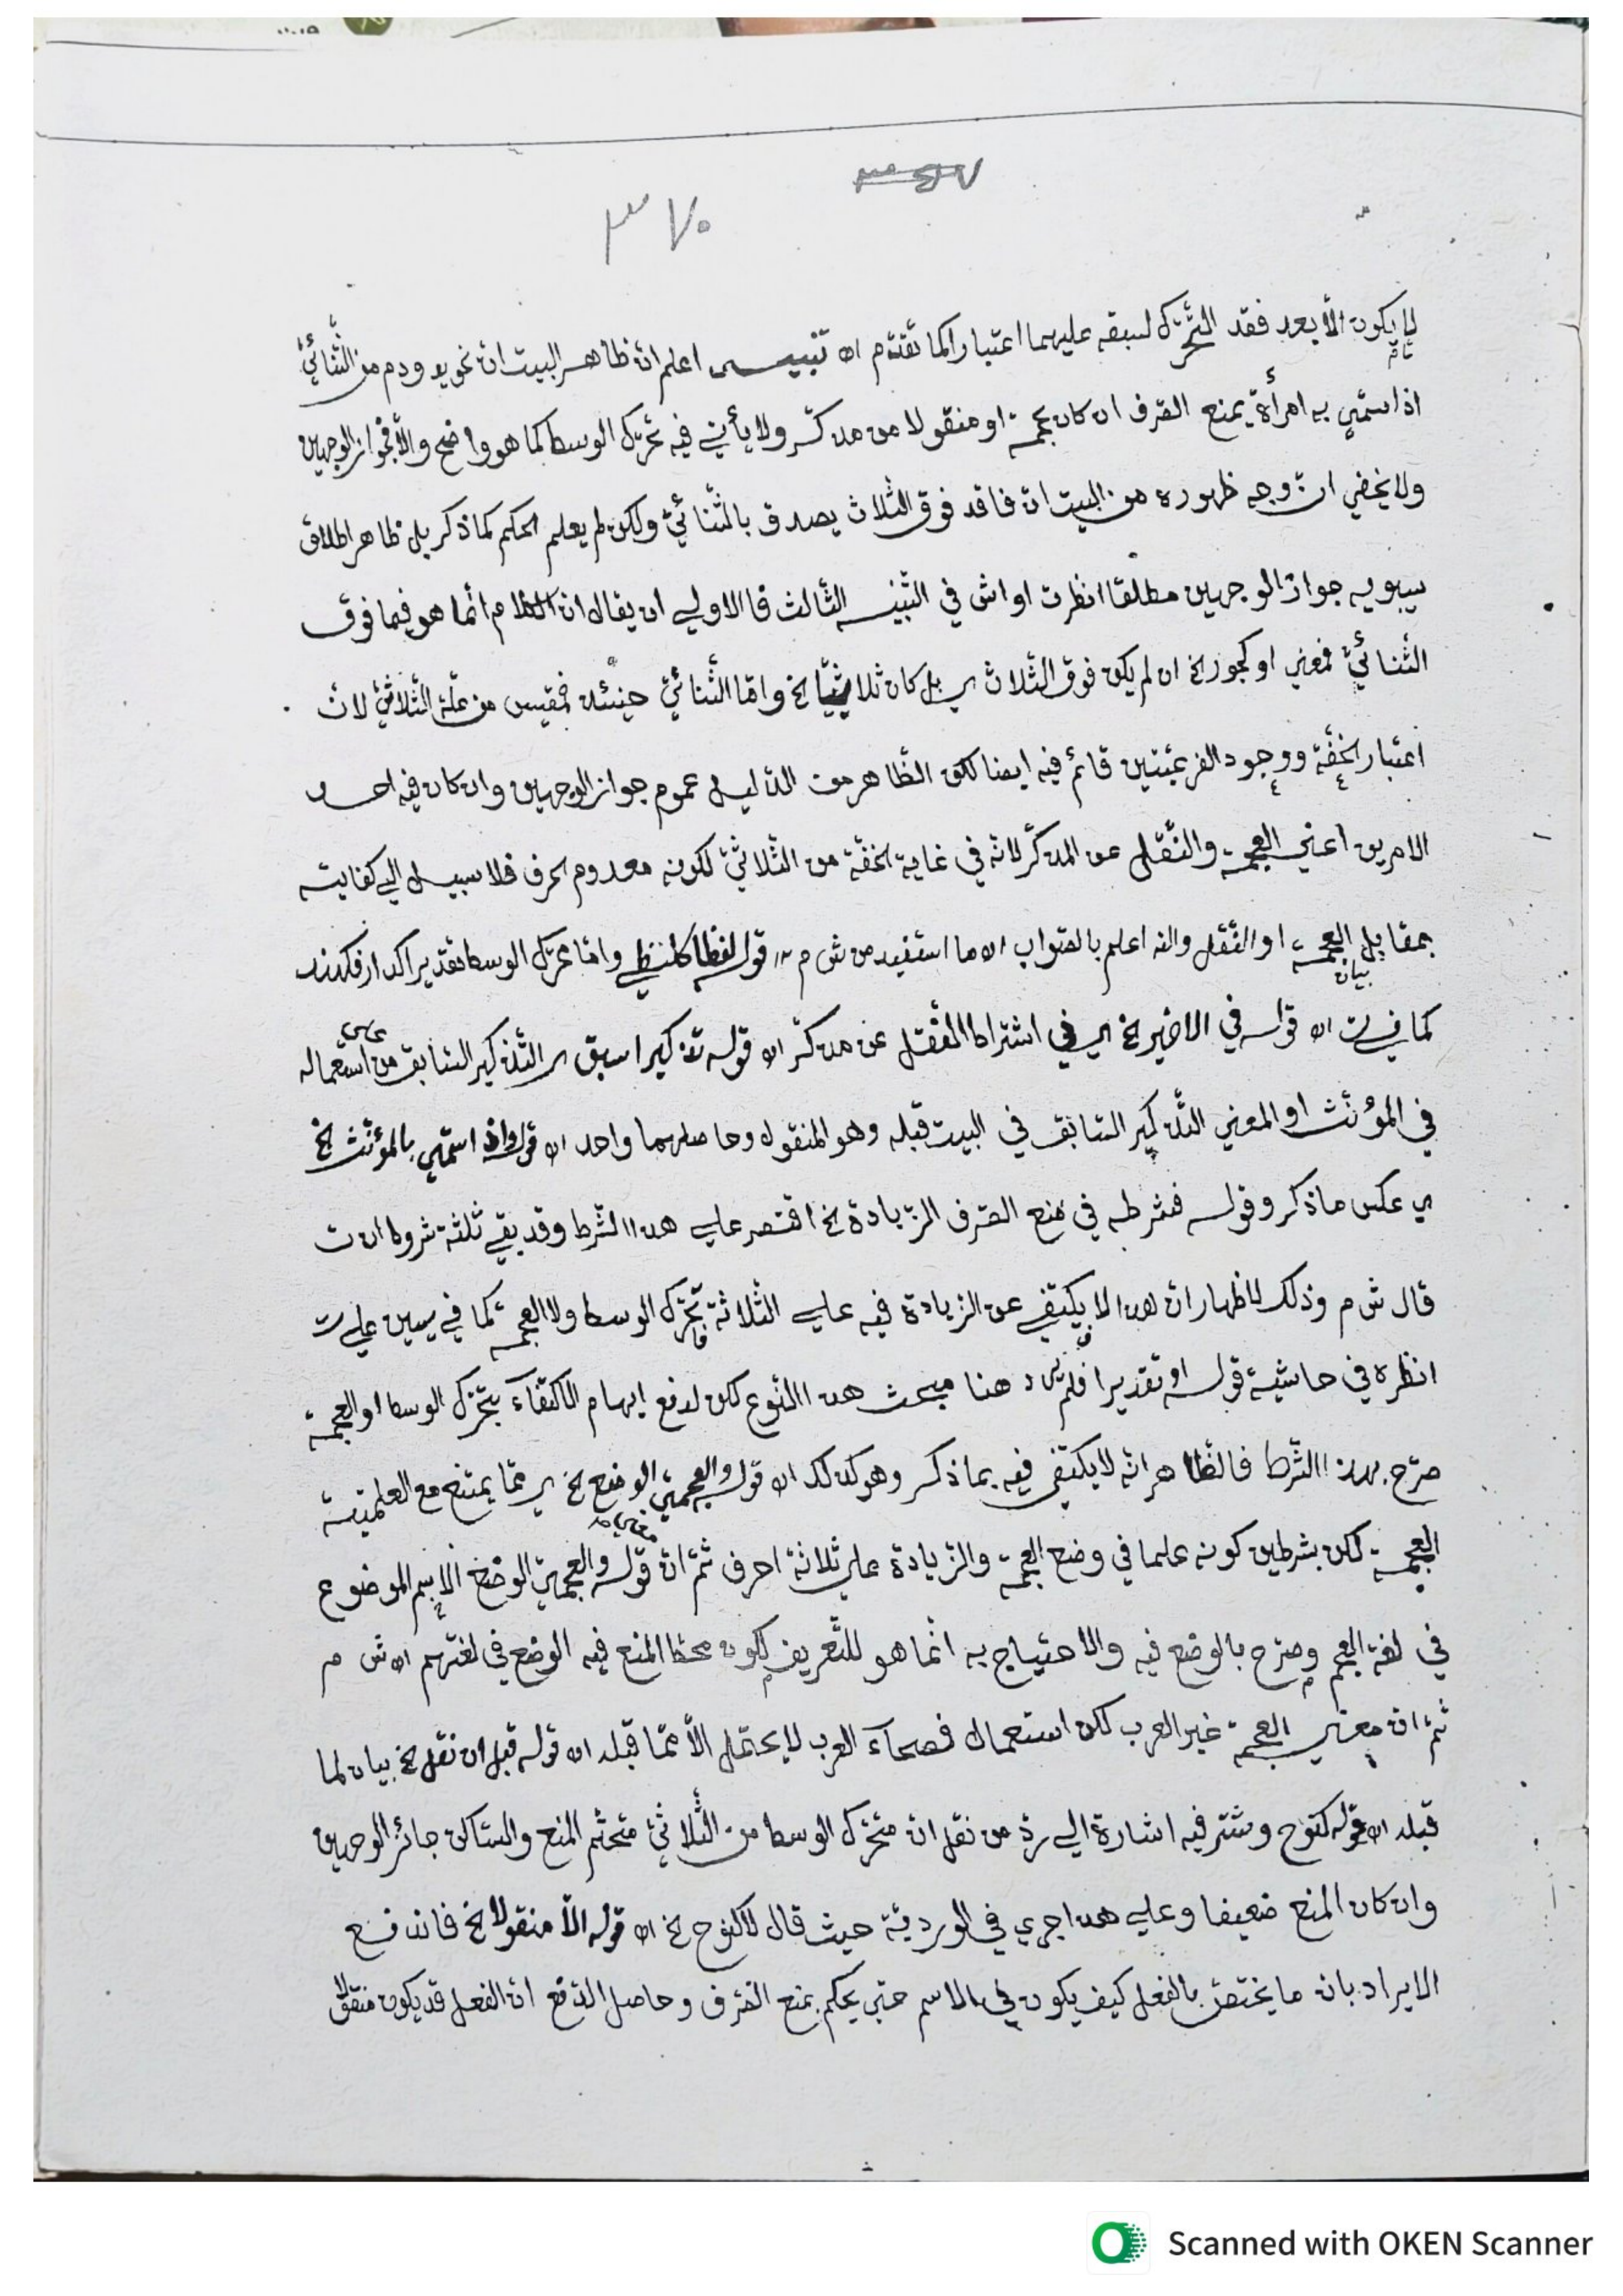 ٣٧٠
لا يكون الا بعد فقد التحرّك لسبقه عليهما اعتبارا كما تقدّم اه تنبيـــه اعلم انّ ظاهر البيت ان نحو يد ودم من الثّنائيّ
اذا سمّي به امرأة يمنع الصّرف ان كان عجمة او منقولا من مذكّر ولا يأتي فيه تحرّك الوسط كما هو واضح والّا فجواز الوجهين
ولا يخفي انّ وجه ظهوره من البيت انّ فاقد فوق الثّلاث يصدق بالثّنائيّ ولكن لم يعلم الحكم كما ذكر بل ظاهر اطلاق
سيبويه جواز الوجهين مطلقا انظرت اواش في التّنبيه الثّالث فالاولي ان يقال ان الكلام انّما هو فيما فوق
الثّنائيّ فمعني او كجور الخ ان لم يكن فوق الثّلاث ي بل كان ثلاثيّا الخ وامّا الثّنائيّ حينئذ فمقيس من علّة الثّلاثيّ لانّ
اعتبار الخفّة ووجود الفرعيّتين قائم فيه ايضا لكن الظّاهر من الدّليل عموم جواز الوجهين وان كان فيه احد
الامرين اعني العجمة والنّقل عن المذكّر لانّه في غاية الخفّة من الثّلاثيّ لكونه معدوم الحرف فلا سبيل الي كفايته
بمقابل العجمة او النّقل والله اعلم بالصّواب اه ما استفيد من ش م قوله لفظا كلظي وامّا تحرّك الوسط تقديرا كدار فكهند
كما في ت اه قوله في الاخير الخ اي في اشتراط النّقل عن مذكّر اه قوله تذكيرا سبق ي التّذكير السّابق من استعماله
في المؤنّث او المعني التّذكير السّابق في البيت قبله وهو المنقول وحاصلهما واحد اه قوله واذا سمّي بالمؤنّث الخ
ي عكس ما ذكر وقوله فشرطه في منع الصّرف الزّيادة الخ اقتصر علي هذا الشّرط وقد بقي ثلثة شروط ان ت
قال ش م وذلك لاظهار انّ هذا لا يكتفي عن الزيادة فيه علي الثّلاثة بتحرّك الوسط ولا العجمة كما في يسين علي ت
انظره في حاشية قوله او تقديرا فلم يرد هنا مبحث هذا النوع لكن لدفع ايهام الاكتفآء بتحرّك الوسط او العجمة
صرّح بهذا الشّرط فالظّاهر انّه لا يكتفي فيه بما ذكر وهو كذلك اه قوله والعجميّ الوضع الخ ي ممّا يمتنع مع العلميّة
العجمة لكن بشرطين كونه علما في وضع العجمة والزّيادة علي ثلاثة احرف ثمّ انّ قوله والعجميّ الوضع الاسم الموضوع
في لغة العجم وصرّح بالوضع فيه والاحتياج به انّما هو للتّعريف لكون محطّ المنع فيه الوضع في لغتهم اه ش م
ثمّ انّ معني العجمة غير العرب لكن استعمال فصحآء العرب لا يحتمل الّا ممّا قبله اه قوله قبل ان نقل الخ بيان لما
قبله اه قوله كنوح وشتر فيه اشارة الي ردّ من نقل انّ متحرّك الوسط من الثّلاثيّ متحتّم المنع والسّاكن جائز الوجهين
وان كان المنع ضعيفا وعلي هذا جري في الورديّة حيث قال لا كنوح الخ اه قوله الّا منقولا الخ فاندفع
الايراد بان ما يختصّ بالفعل كيف يكون في الاسم حتي يحكم بمنع الصّرف وحاصل الدّفع انّ الفعل قد يكون منقولا
Scanned with OKEN Scanner